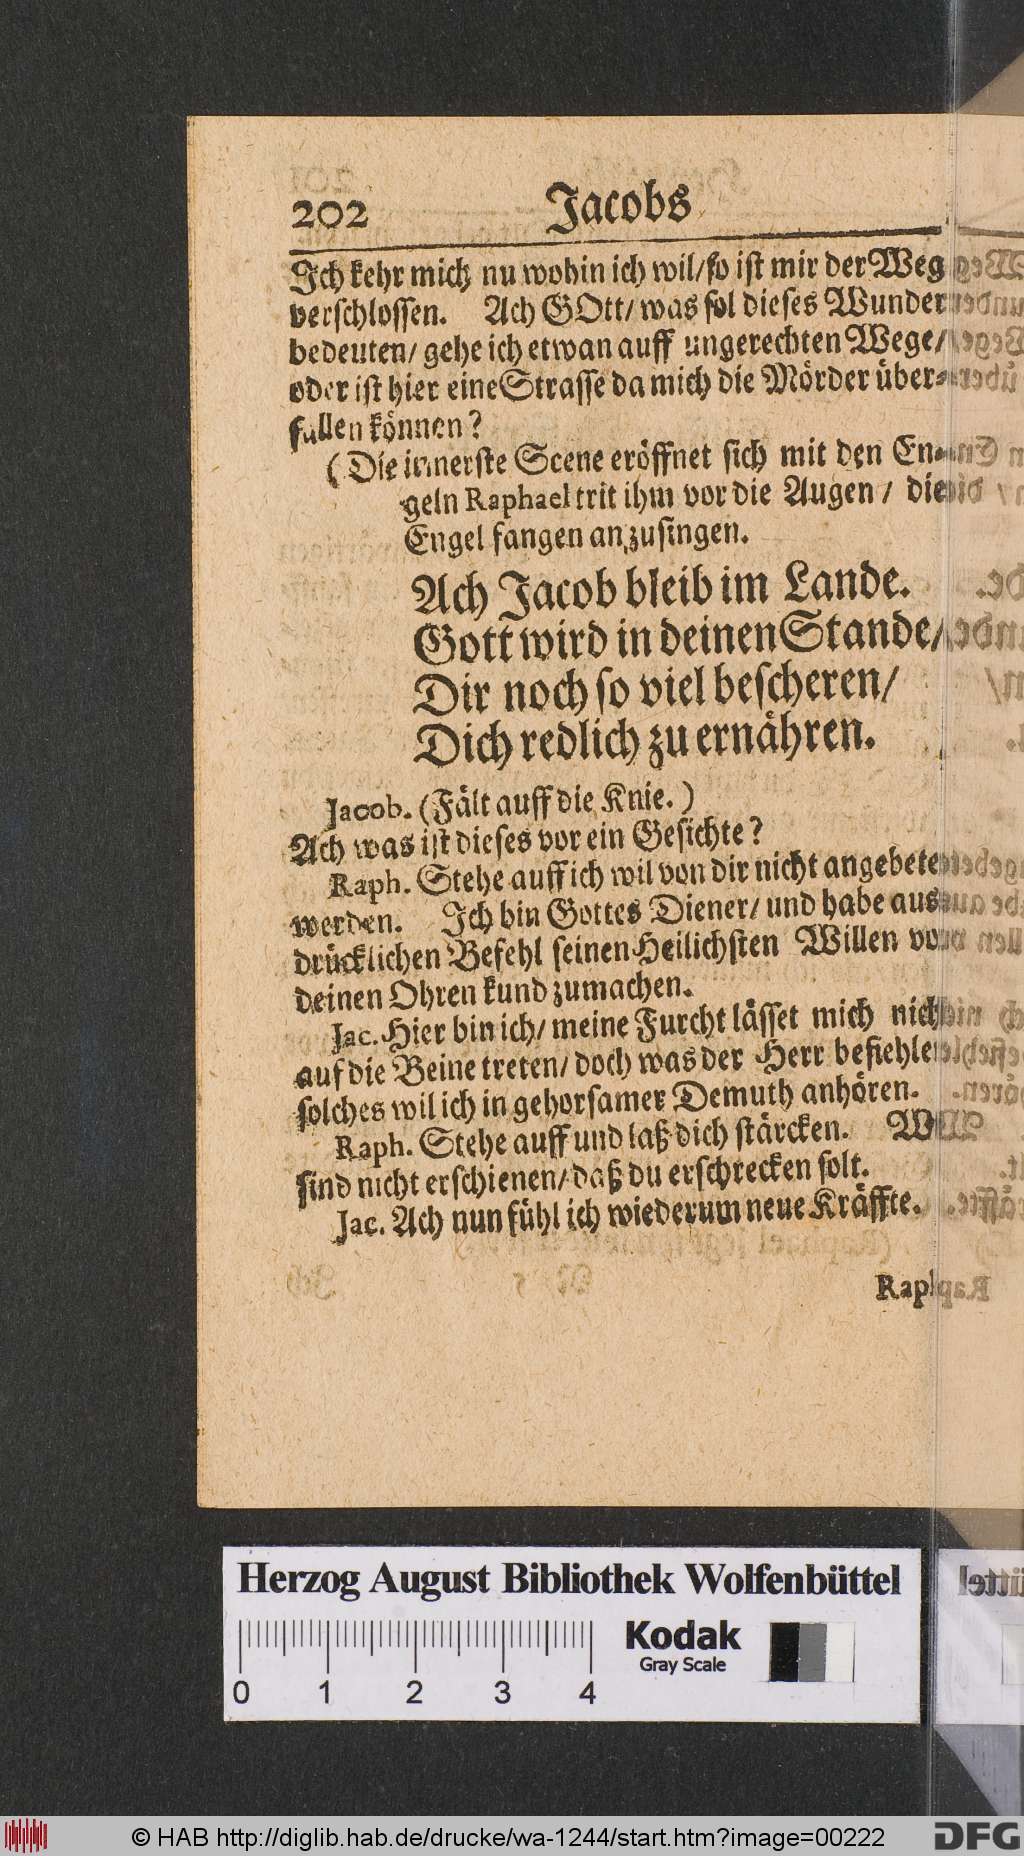 202 Jacobs
Ich kehr mich nu wohin ich wil/ so ist mir der Weg
verschlossen. Ach GOtt/ was sol dieses Wunder
bedeuten/ gehe ich etwan auff ungerechten Wege/
oder ist hier eine Strasse da mich die Mörder über-
fallen können?
(Die innerste Scene eröffnet sich mit den En-
geln Raphael trit ihm vor die Augen / die
Engel fangen an zu singen.
Ach Jacob bleib im Lande.
Gott wird in deinen Stande/
Dir noch so viel bescheren/
Dich redlich zu ernähren.
Jacob. (Fält auff die Knie.)
Ach was ist dieses vor ein Gesichte?
Raph. Stehe auff ich wil von dir nicht angebete
werden. Ich bin Gottes Diener/ und habe aus-
drücklichen Befehl seinen Heilichsten Willen vor
deinen Ohren kund zumachen.
Jac. Hier bin ich/ meine Furcht lässet mich nicht
auf die Beine treten/ doch was der Herr befiehlet
solches wil ich in gehorsamer Demuth anhören.
Raph. Stehe auff und laß dich stärcken. Wir
sind nicht erschienen/ daß du erschrecken solt.
Jac. Ach nun fühl ich wiederum neue Kräffte.
Raph
Herzog August Bibliothek Wolfenbüttel
Kodak
Gray Scale
0 1 2 3 4
© HAB http://diglib.hab.de/drucke/wa-1244/start.htm?image=00222
DFG